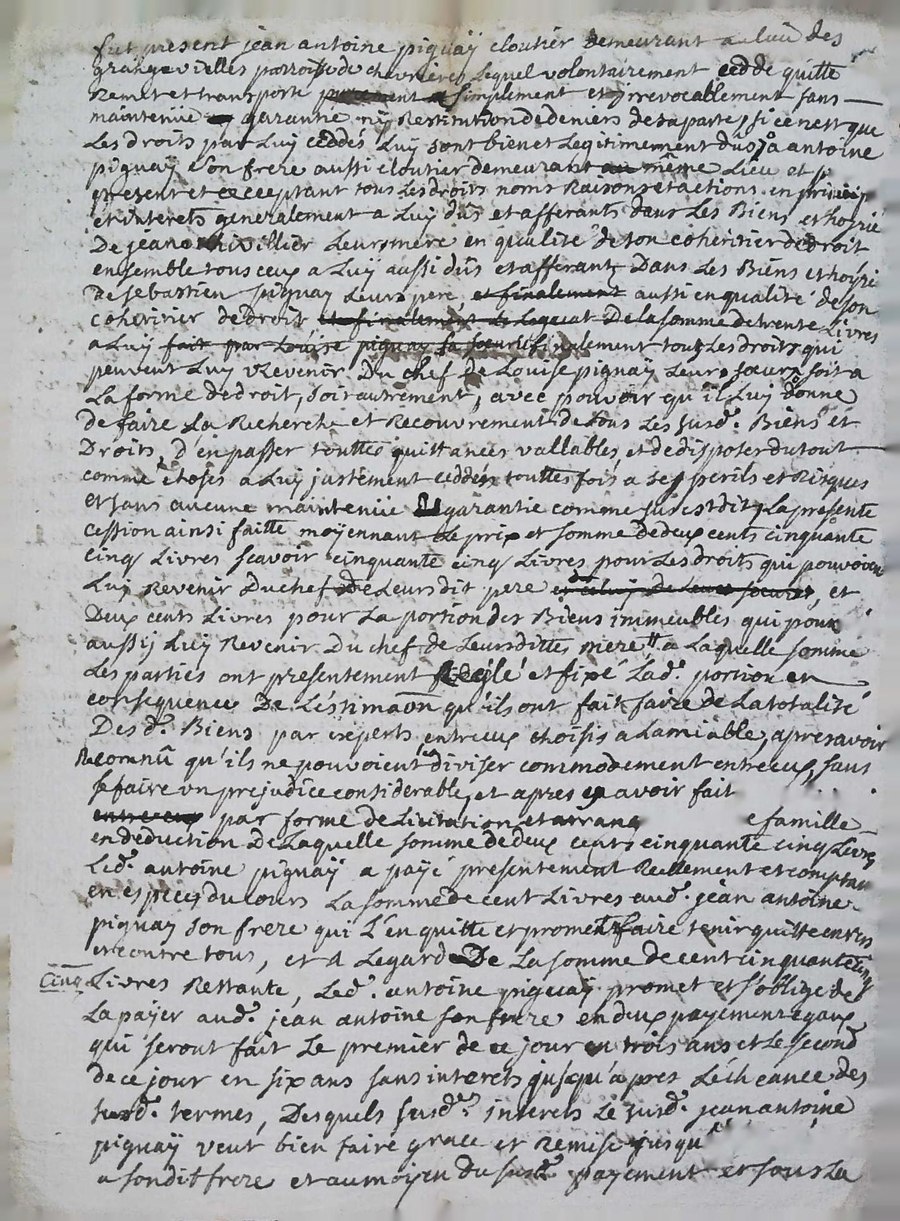 fut present jean antoine piguaÿ cloutier demeurant a lieu des
grange vielles parroisse de chevrieres Lequel volontairement cedde quitte
Remet et transporte purement et simplement et yrrevocallement sans
maintenüe garantie ny Restitution de deniers de sa parte, si ce nest que
Les droits par Luy ceddés Luy sont bien et Legitimement dus, a antoine
piguaÿ son frere aussi cloutier demeurant au même Lieu et
present et acceptant tous Les droits noms Raisons et actions en
et interets generalement a Luy dûs et afferants dans Les Biens et hoirie
De jeane Leur mere en qualité de son coheritier de droit
ensemble tous ceux a Luÿ aussi dûs et afferants Dans Les Biens et hoirie
de sebastien piguay Leur pere et finalement aussi en qualité de son
coheritier de droit, et finalement de Legeat De la somme de trente Livres
a Luÿ fait par Louise piguay sa sœur finalement tous Les droits qui
peuvent Luy Revenir Du chef de Louise piguaÿ Leur sœur soit a
La forme de droit, soit autrement, avec pouvoir qu'il Luy donne
de faire La Recherche et Recouvrement de tous Les susd. Biens et
Droits, d'en passer touttes quittances vallables, et de disposer du tout
comme choses a Luy justement ceddées touttes fois a ses perils et Risques
et sans aucune maintenüe garantie comme sus est dit, La presente
cession ainsi faitte moyennant Le prix et somme de deux cents cinquante
cinq Livres scavoir cinquante cinq Livres pour Les droits qui pouvoien
Luy Revenir Du chef De Leurdit pere et celuy De Leur sœur, et
Deux cents Livres pour La portion des Biens immeubles qui
aussy Luy Revenir Du chef de Leurditte mere a Laquelle somme
Les parties ont presentement Reglé et fixé Lad. portion en
consequence De L'estimaon qu'ils ont fait faire de La totalité
Des d. Biens par experts entreux choisis a Lamiable, apres avoir
Reconnû qu'ils ne pouvoient diviser commodement entreceux, sans
se faire un prejudice considerable, et apres en avoir fait
entreeux par forme de Licitation et arrang e famille
en deduction De Laquelle somme de deux cents cinquante cinq Livres
Led. antoine piguaÿ a payé presentement Reellement et comptan
en especes du cours La somme de cent Livres aud. jean antoine
piguay son frere qui L'en quitte et promet faire tenir quitte envers
et contre tous, et a Legard De La somme de cent cinquante cinq
cinq Livres Restante, Led. antoine piguaÿ promet et s'oblige de
La payer aud. jean antoine son frere en deux payement egaux
qui seront fait Le premier de ce jour en trois ans et Le second
de ce jour en six ans sans interets jusqu'apres L'echeance des
susd. termes, Desquels susd. interets Le susd. jean antoine
piguaÿ veut bien faire grace et Remise jusqu
a sondit frere et au moyen du susd. payement et sous La